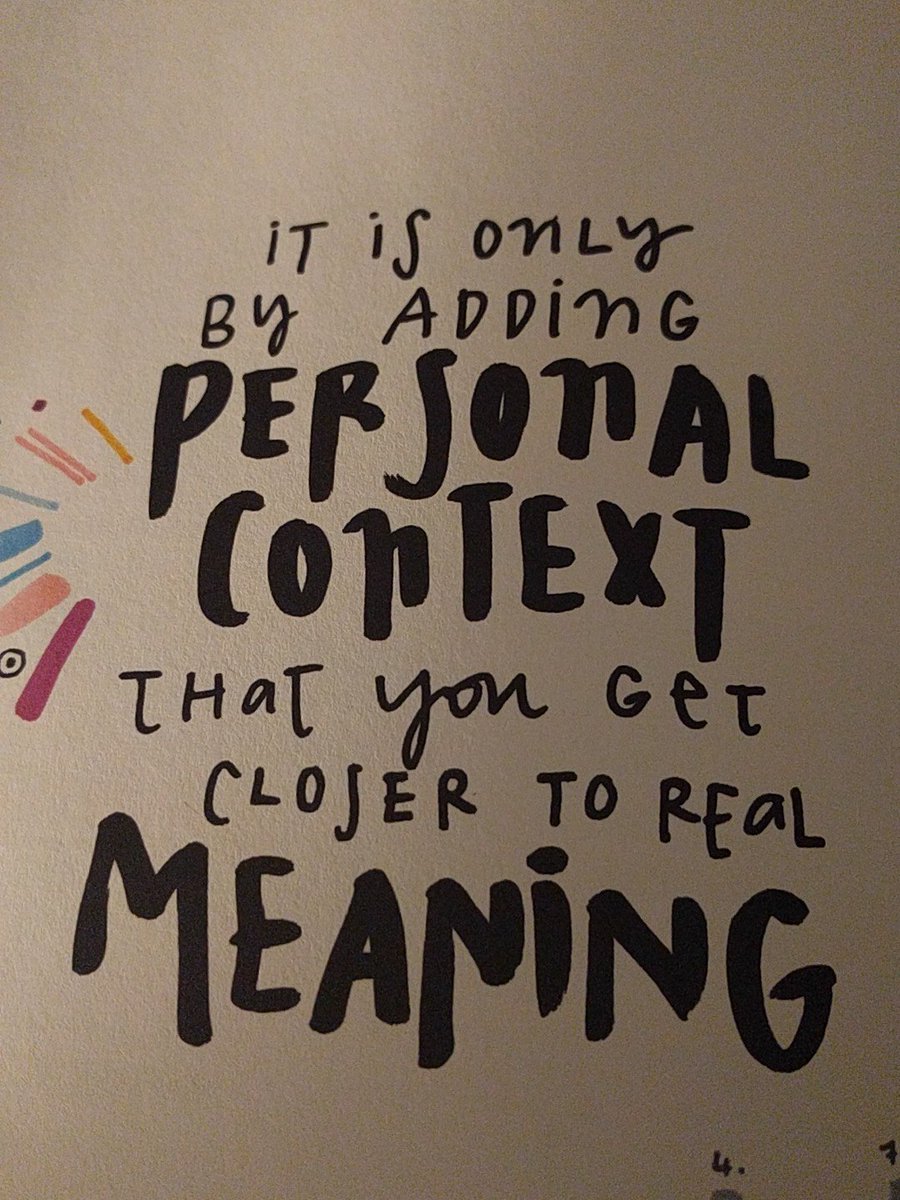 iT iS ONLY
BY ADDiNG
PERSONAL
CONTEXT
THaT you GeT
CLOSER TO REaL
MEANiNG
4.
7